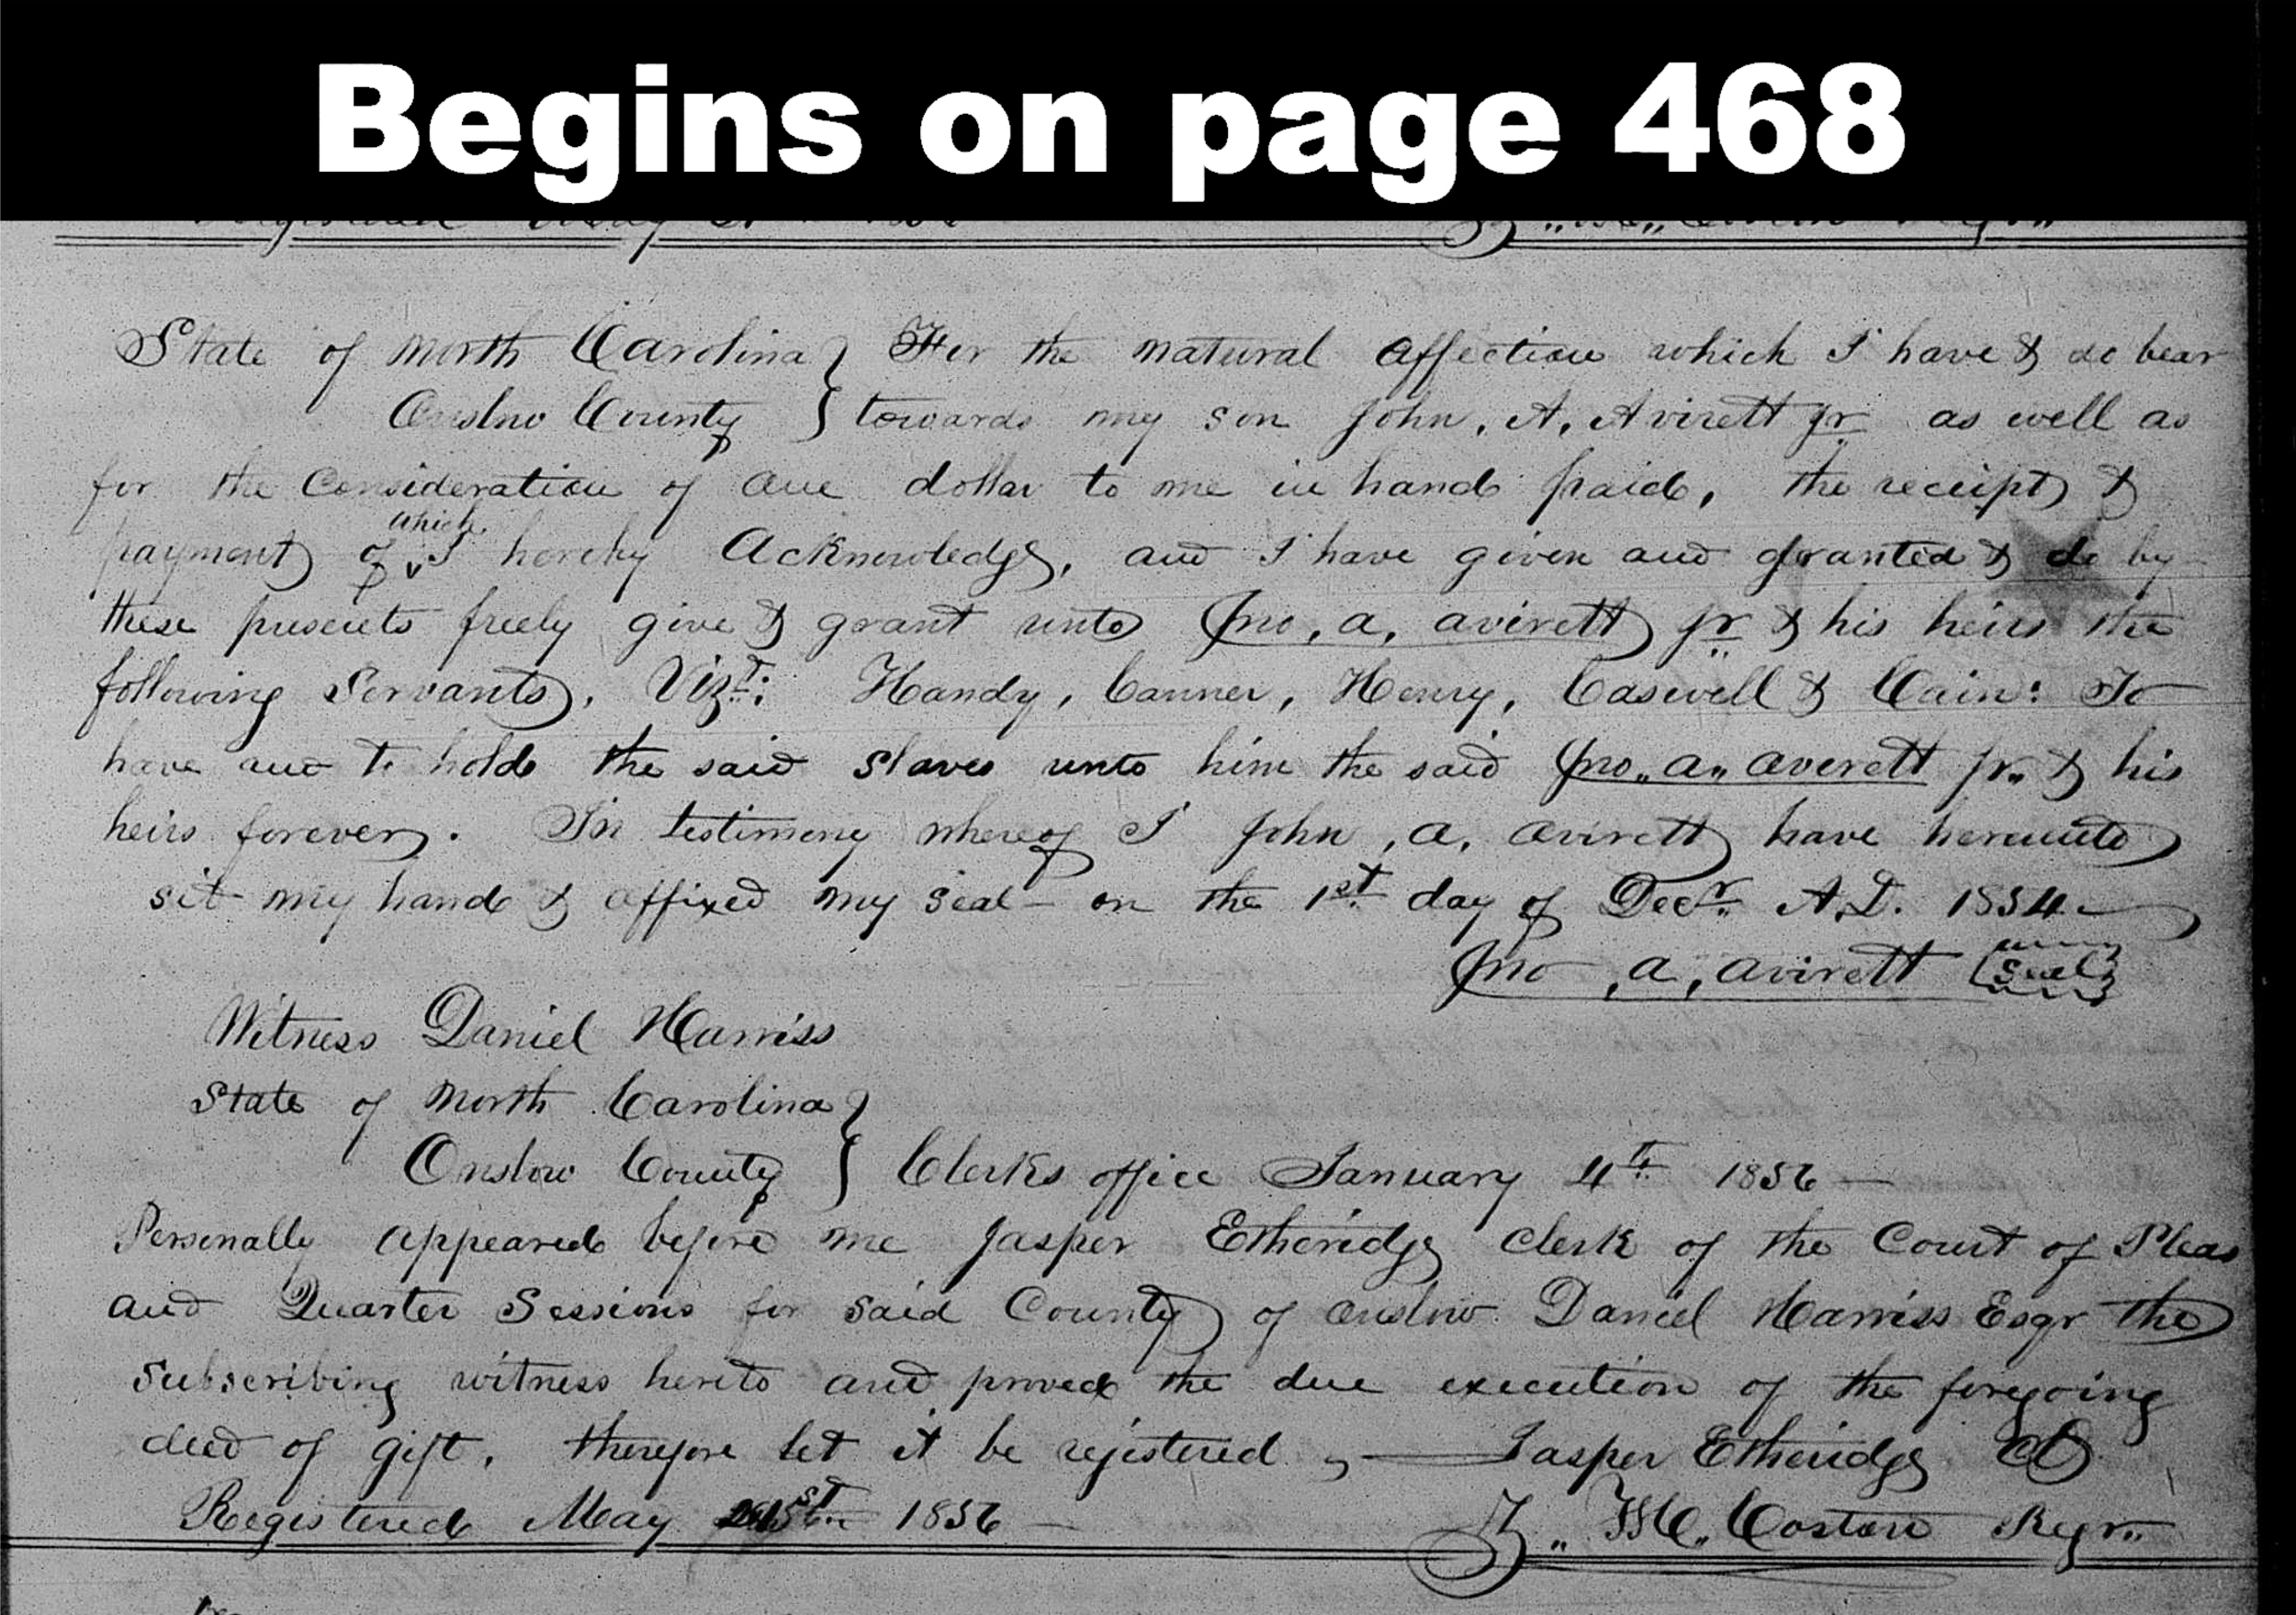 Begins on page 468
State of North Carolina } For the natural affection which I have & do bear
Onslow County } towards my son John, A, Avirett jr as well as
for the Consideration of one dollar to me in hand paid, the receipt &
which
payment of I hereby Acknowledge, and I have given and granted & do by
these presents freely give & grant unto Jno, A, Avirett jr & his heirs the
following Servants, Vizt: Handy, Canner, Henry, Caswell & Cain: To
have and to hold the said slaves unto him the said Jno,, A,, Averett jr,, & his
heirs forever. In testimony whereof I John, A, Avirett have hereunto
set my hand & affixed my seal - on the 1st day of Decr. A.D. 1854
Jno, A, Avirett (Seal)
Witness Daniel Harriss
State of North Carolina }
Onslow County } Clerks office January 4th 1856 —
Personally appeared before me Jasper Etheridge Clerk of the Court of Pleas
and Quarter Sessions for said County of Onslow Daniel Harriss Esqr the
subscribing witness hereto and proved the due execution of the foregoing
deed of gift, therefore let it be registered, — Jasper Etheridge
Registered May 1856 — Costen Regr,,